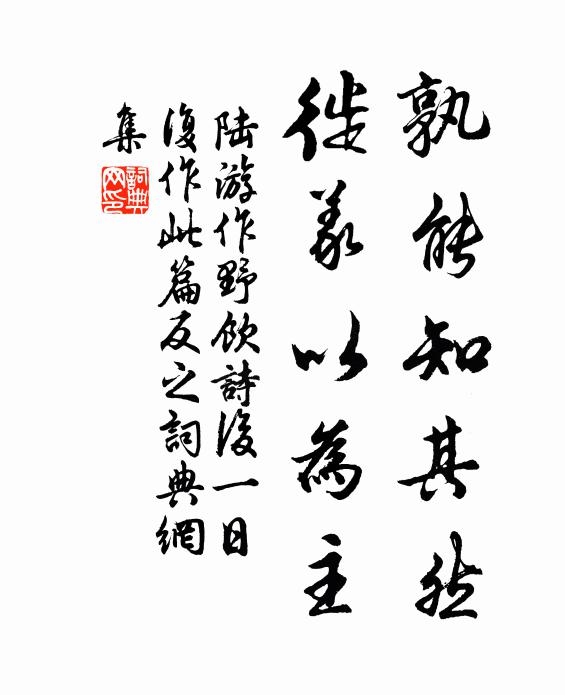 孰能知其然
徙義以為主
陸游作野飲詩後一日
復作此篇反之詞典網
集
詞典
网印